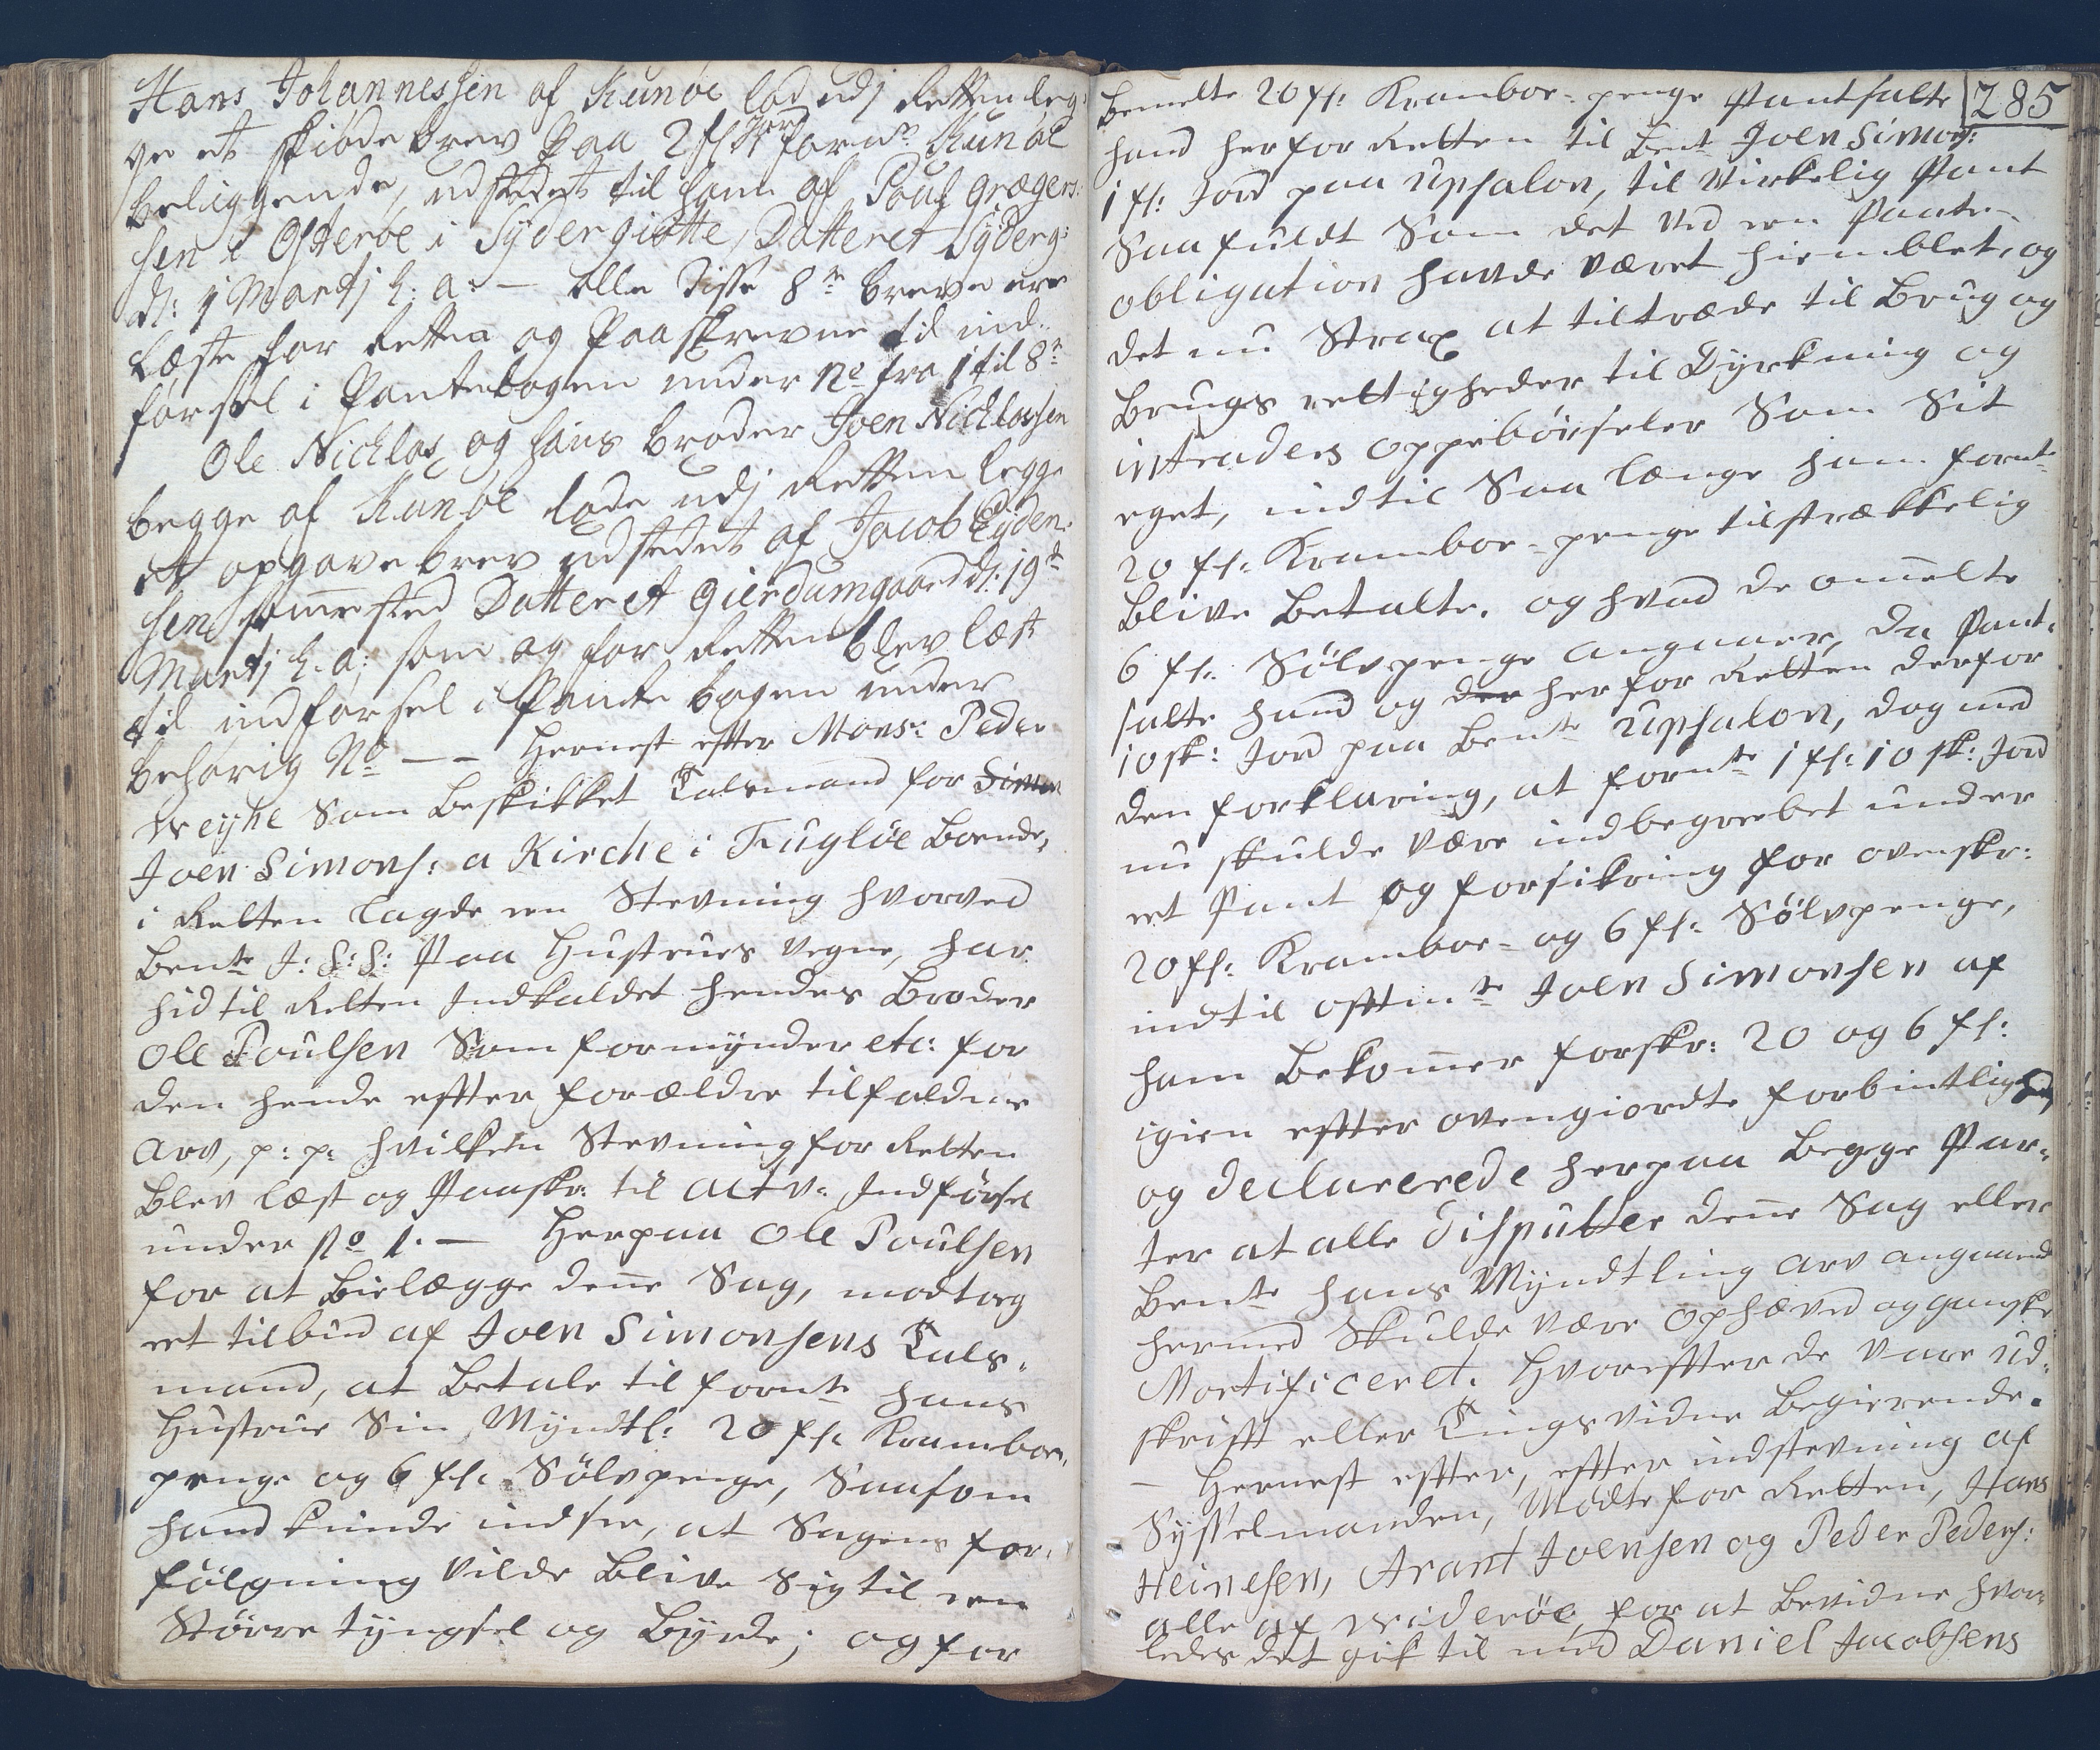 Hans Johannessen af Kunøe lod udj Retten leg-
ge et skiøde brev paa 2 fl Jord forn:te Kunøe
beliggende, udstædet til ham af Poul Grægers:
sen i Østerøe i Sydergiøtte, Datteret Syderg:
d: 1 Martj h: a: — Alle disse 8te breve ere
læste for Retten og Paaskrevne til ind-
førsel i Pantebogen under No fra 1 til 8te
Ole Nicklas og hans broder Joen Nicklassen
begge af Kunøe lode udj Retten legge
et opgave brev udstedet af Jacob Eÿden-
sen sam̅ested Datteret Gierdumgaard d: 19de
Martj h. a; som og for Retten blev læst
til indførsel i Pante bogen under
behørig No — — Hernest efter Mons:r Peder
Weyhe Som Beskikket Talsmand for Simon
Joen Simons: a Kirche i Fugløe Boende,
i Retten lagde een Stevning hvorved
Bente J: S: S: Paa Hustrues Vegne, har
hid til Retten Indkaldet hendes Broder
Ole Poulsen Som formynder etc: for
den hende efter forældre tilfaldne
Arv, p: p: hvilken Stevning for Retten
Blev læst og Paaskr: til Act v: Indførsel
under No 1. — Herpaa Ole Poulsen
for at Bielægge den̅e Sag, modtog
et tilbud af Joen Simonsens Tals-
mand, at Betale til fornte hans
Hustrue Sin Myndtl: 20 fl: Kramboe-
penge og 6 fl: Sølvpenge, Saasom
hand kunde indsee, at Sagens for-
følgning vilde Blive Sig til een
Større tyngsel og Byrde; og for
285
bemelte 20 fl: Kramboe-penge Pantsatte
hand herfor Retten til Bent Joen Simons:
1 fl: Jord paa Upsalon, til Virkelig Pant
Saa fuldt Som det Ved een Pante-
obligation havde Været hiemblet, og
det nu Strax at tiltræde til Brug og
Brugs rettigheder til Dyrkning og
intraders oppebørseler Som Sit
eget, indtil Saa længe ham fornte
20 fl: Kramboe-penge tilstrækkelig
Blive Betalte. og hvad de om̅elte
6 fl: Sølvpenge angaaer, da Pant-
satte hand og der herfor Retten derfor
10 sk: Jord paa Bente Upsalon, dog med
den forklaring, at fornte 1 fl: 10 sk: Jord
nu skulde Være indbegrebet under
et Pant og forsikring for ovenskr:
20 fl: Kramboe- og 6 fl: Sølvpenge,
indtil oftmte Joen Simonsen af
ham Bekom̅er forskr: 20 og 6 fl:
igien efter ovengiordte forbintlighed,
og declarerede herpaa Begge Par-
ter at alle disputter den̅e Sag eller
Bente hans Myndtling Arv angaaende
hermed Skulde Være ophæved og ganske
Mortificeret. Hvorefter de Vare ud-
skrift eller Tingsvidne Begierende.
— Hernest efter, efter indstevning af
Sysselmanden, Mødte for Retten, Hans
Heinesen, Arant Joensen og Peder Peders:
alle af Widerøe, for at Bevidne hvor-
ledes det gik til med Daniel Jacobsens